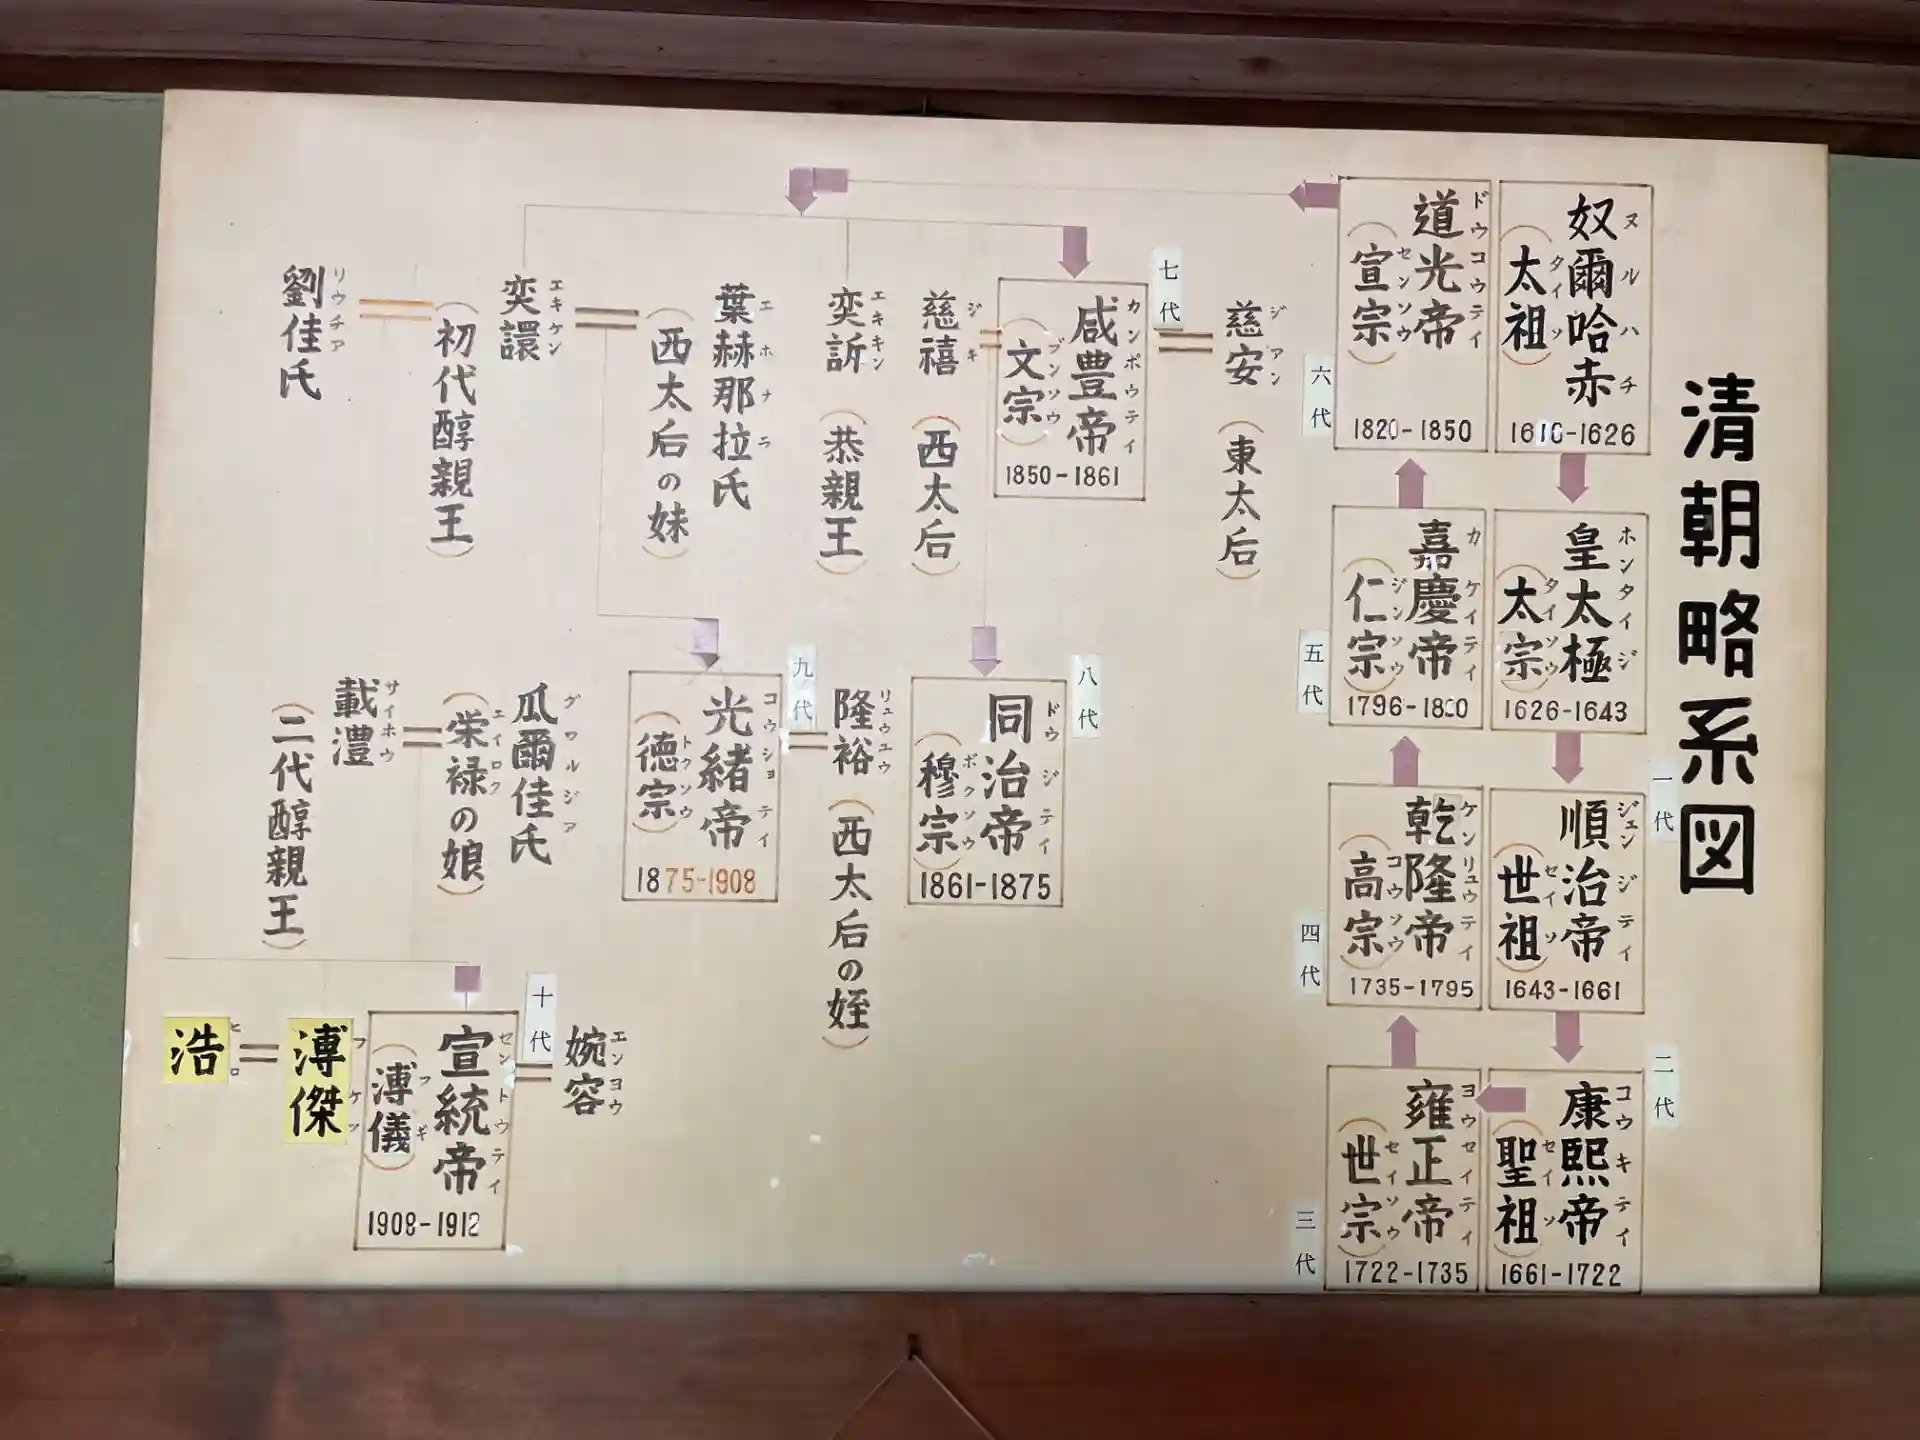 清朝略系図
奴爾哈赤
ヌルハチ
(太祖)
タイソ
1616-1626
皇太極
ホンタイジ
(太宗)
タイソウ
1626-1643
一代
順治帝
ジュンジテイ
(世祖)
セイソ
1643-1661
二代
康熙帝
コウキテイ
(聖祖)
セイソ
1661-1722
三代
雍正帝
ヨウセイテイ
(世宗)
セイソウ
1722-1735
四代
乾隆帝
ケンリュウテイ
(高宗)
コウソウ
1735-1795
五代
嘉慶帝
カケイテイ
(仁宗)
ジンソウ
1796-1820
六代
道光帝
ドウコウテイ
(宣宗)
センソウ
1820-1850
慈安(東太后)
ジアン
七代
咸豊帝
カンポウテイ
(文宗)
ブンソウ
1850-1861
慈禧(西太后)
ジキ
奕訢(恭親王)
エキキン
葉赫那拉氏
エホナラ
(西太后の妹)
奕譞
エキケン
(初代醇親王)
劉佳氏
リウチア
八代
同治帝
ドウジテイ
(穆宗)
ボクソウ
1861-1875
隆裕(西太后の姪)
リュウユウ
九代
光緒帝
コウショテイ
(徳宗)
トクソウ
1875-1908
瓜爾佳氏
グワルジア
(栄禄の娘)
エイロク
載灃
サイホウ
(二代醇親王)
婉容
エンヨウ
十代
宣統帝
セントウテイ
(溥儀)
フギ
1908-1912
溥傑
フケツ
浩
ヒロ